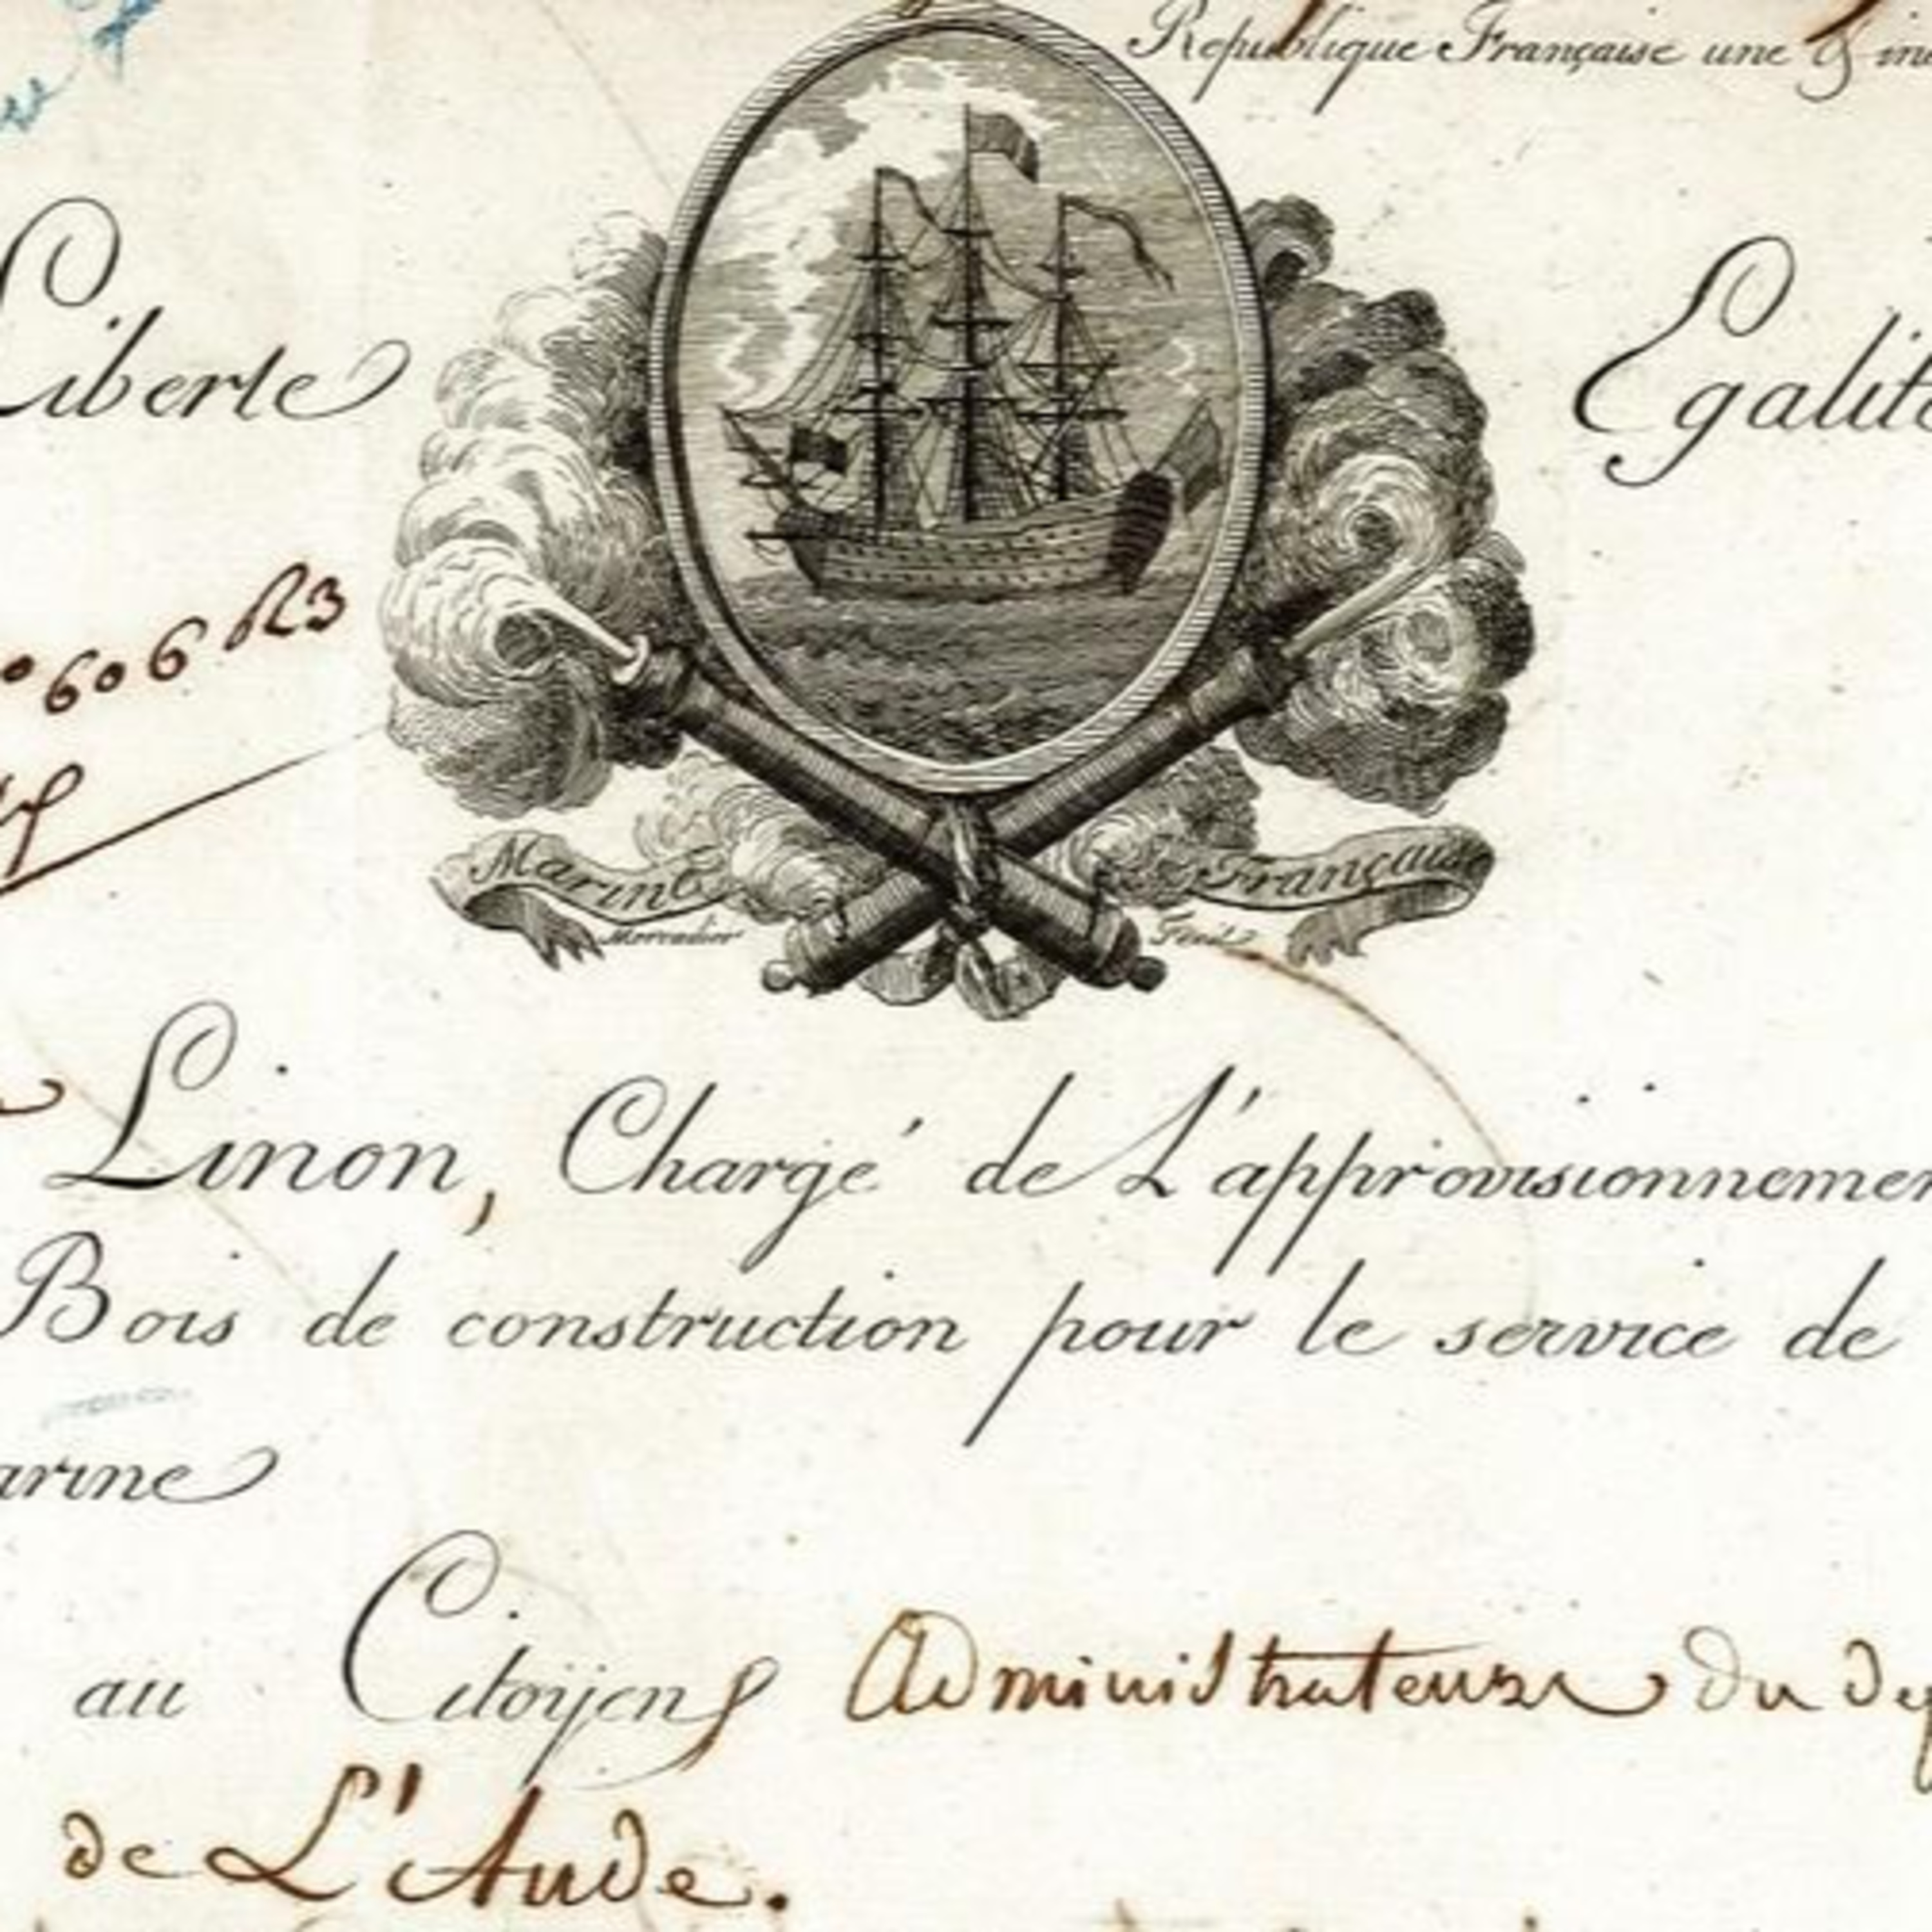 République Française une &
Liberte
Egalité
606 R3
Marine Française
Mercadier Fecit
Linon, Chargé de L'approvisionnemen
Bois de construction pour le service de
arine
au Citoyens Administrateurs du dep
de L'Aude.